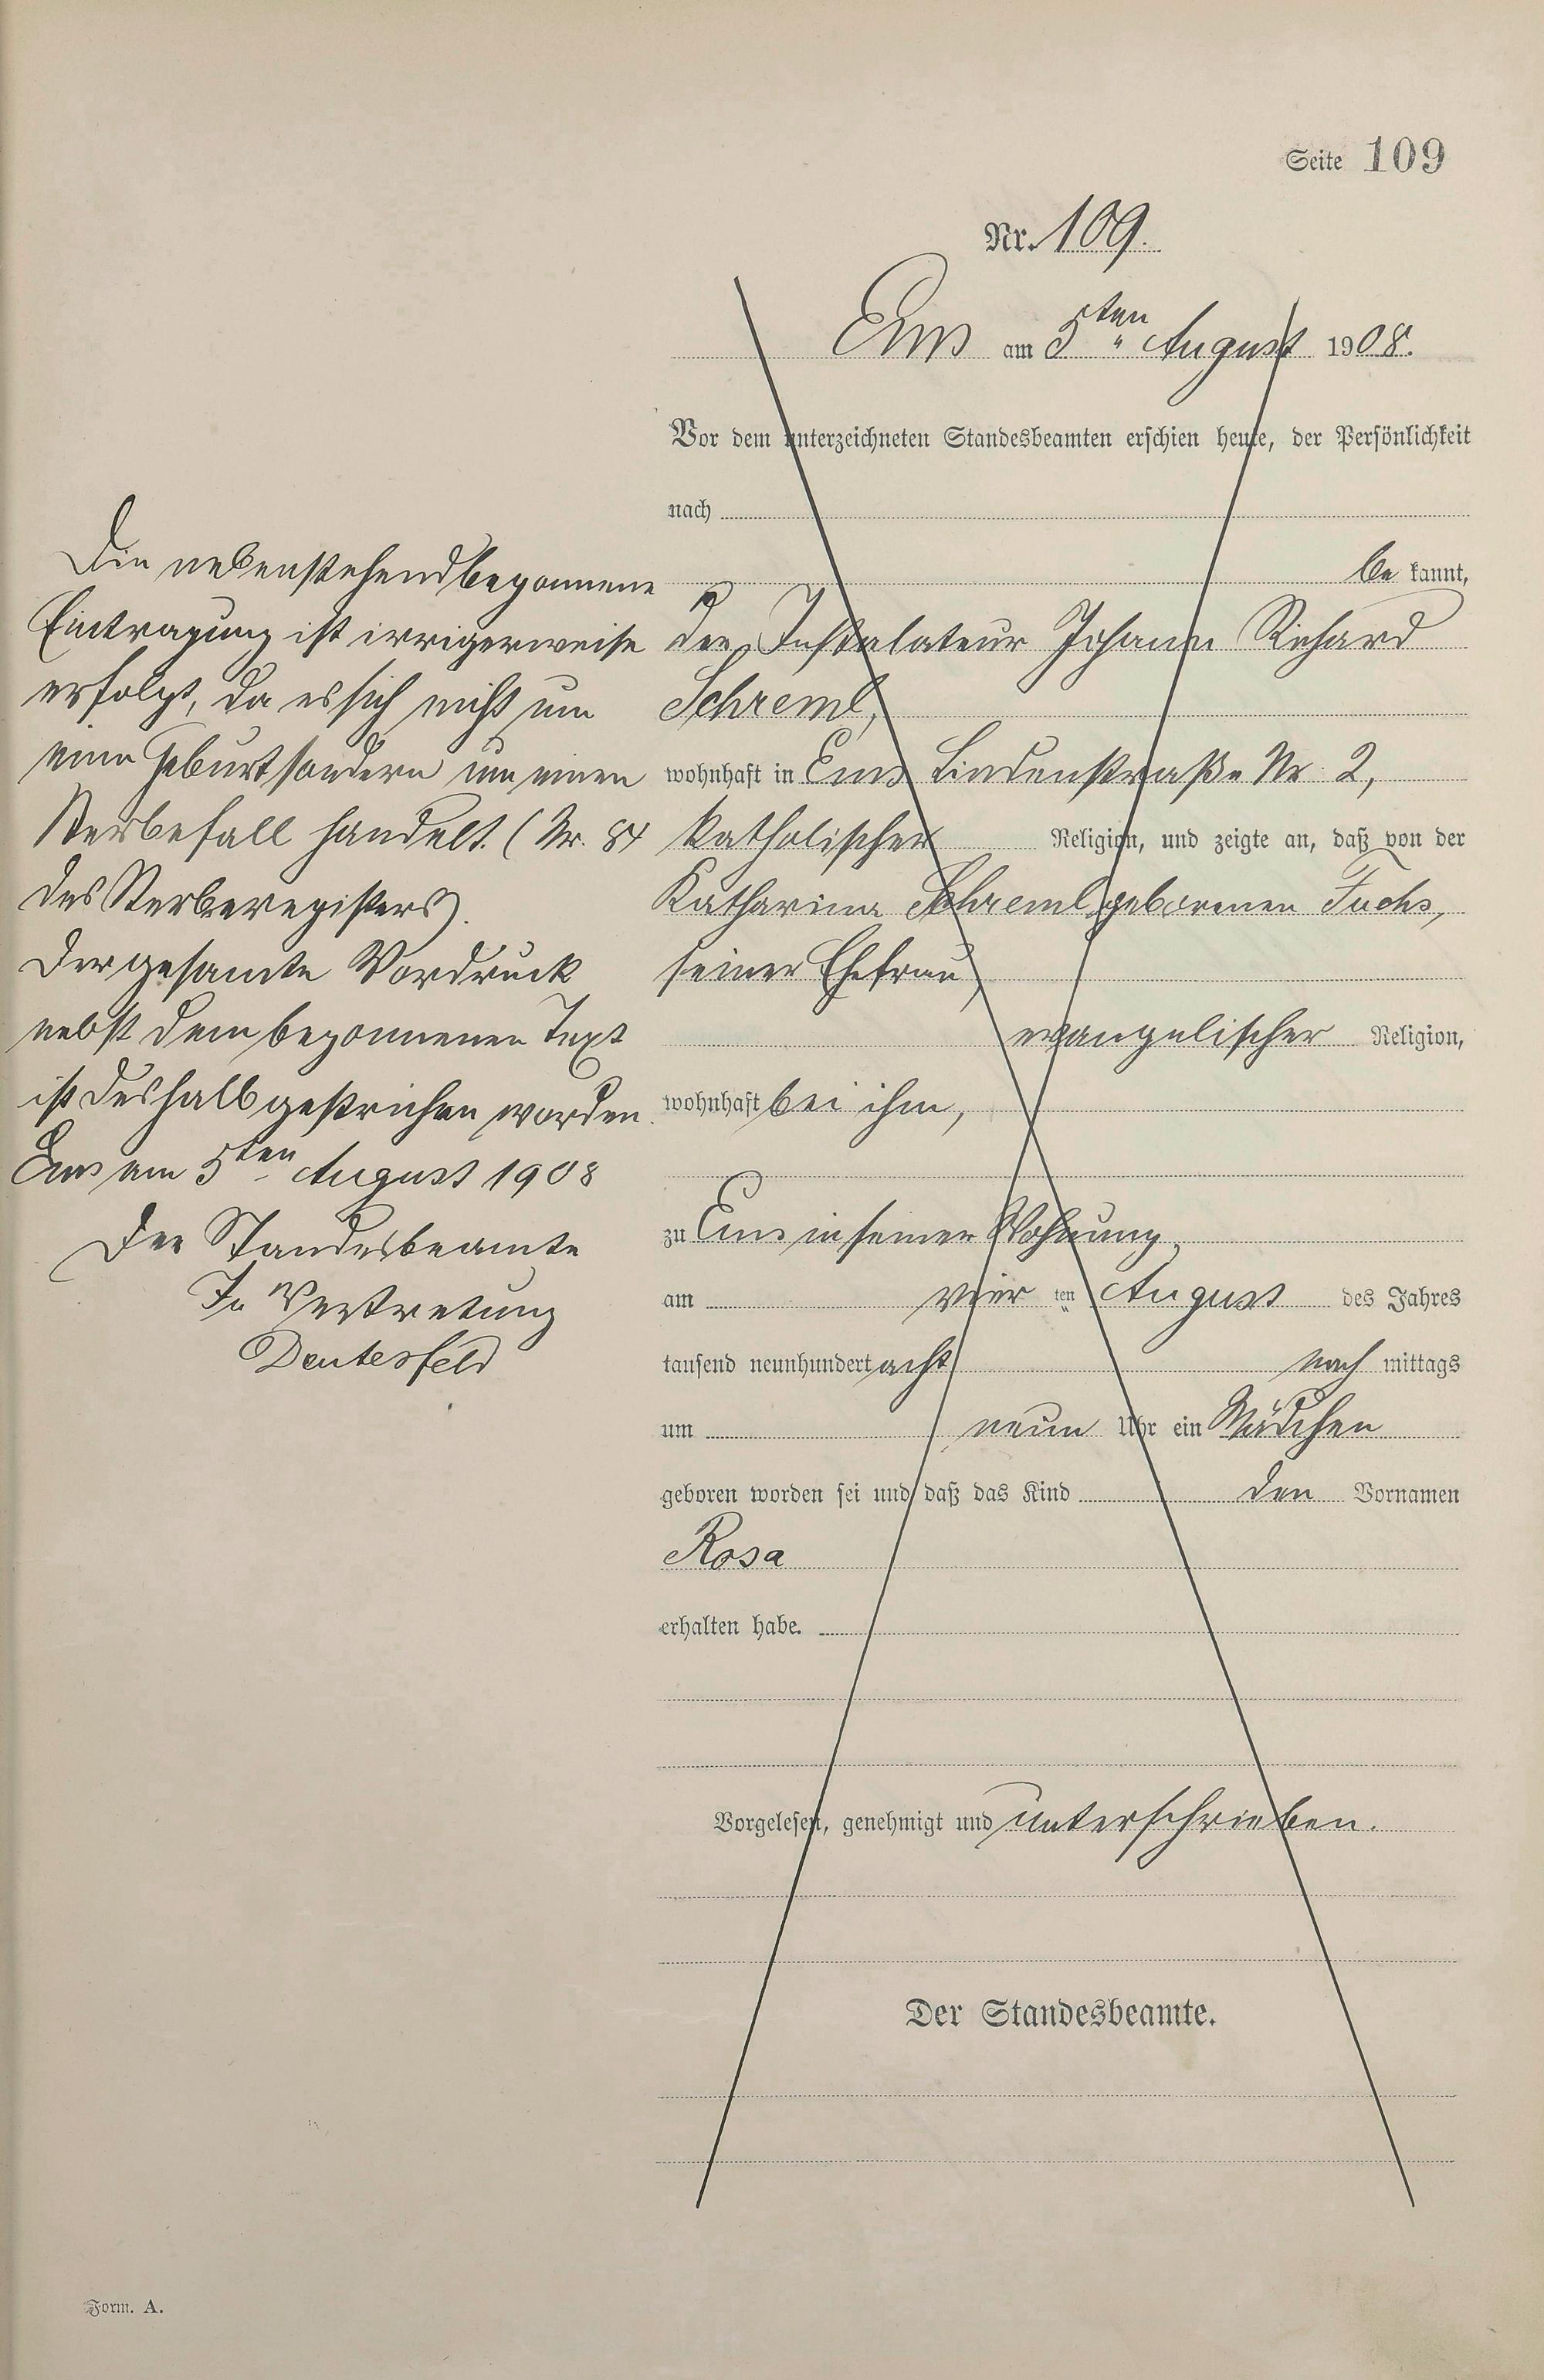 Seite 109
Nr. 109.
Ems am 5ten August 1908.
Vor dem unterzeichneten Standesbeamten erschien heute, der Persönlichkeit
nach
be kannt,
der Installateur Johann Richard
Schreml,
wohnhaft in Ems Lindenstraße Nr. 2,
katholischer Religion, und zeigte an, daß von der
Katharina Schreml geborenen Fuchs,
seiner Ehefrau,
evangelischer Religion,
wohnhaft bei ihm,
zu Ems in seiner Wohnung,
am vier ten August des Jahres
tausend neunhundert acht nach mittags
um neun Uhr ein Mädchen
geboren worden sei und daß das Kind den Vornamen
Rosa
erhalten habe.
Vorgelesen, genehmigt und unterschrieben.
Der Standesbeamte.
Die nebenstehend begonnene
Eintragung ist irrigerweise
erfolgt, da es sich nicht um
eine Geburt sondern um einen
Sterbefall handelt. (Nr. 84
des Sterberegisters).
Der gesamte Vordruck
nebst dem begonnenen Text
ist deshalb gestrichen worden.
Ems am 5ten August 1908
Der Standesbeamte
In Vertretung
Deutesfeld
Form. A.